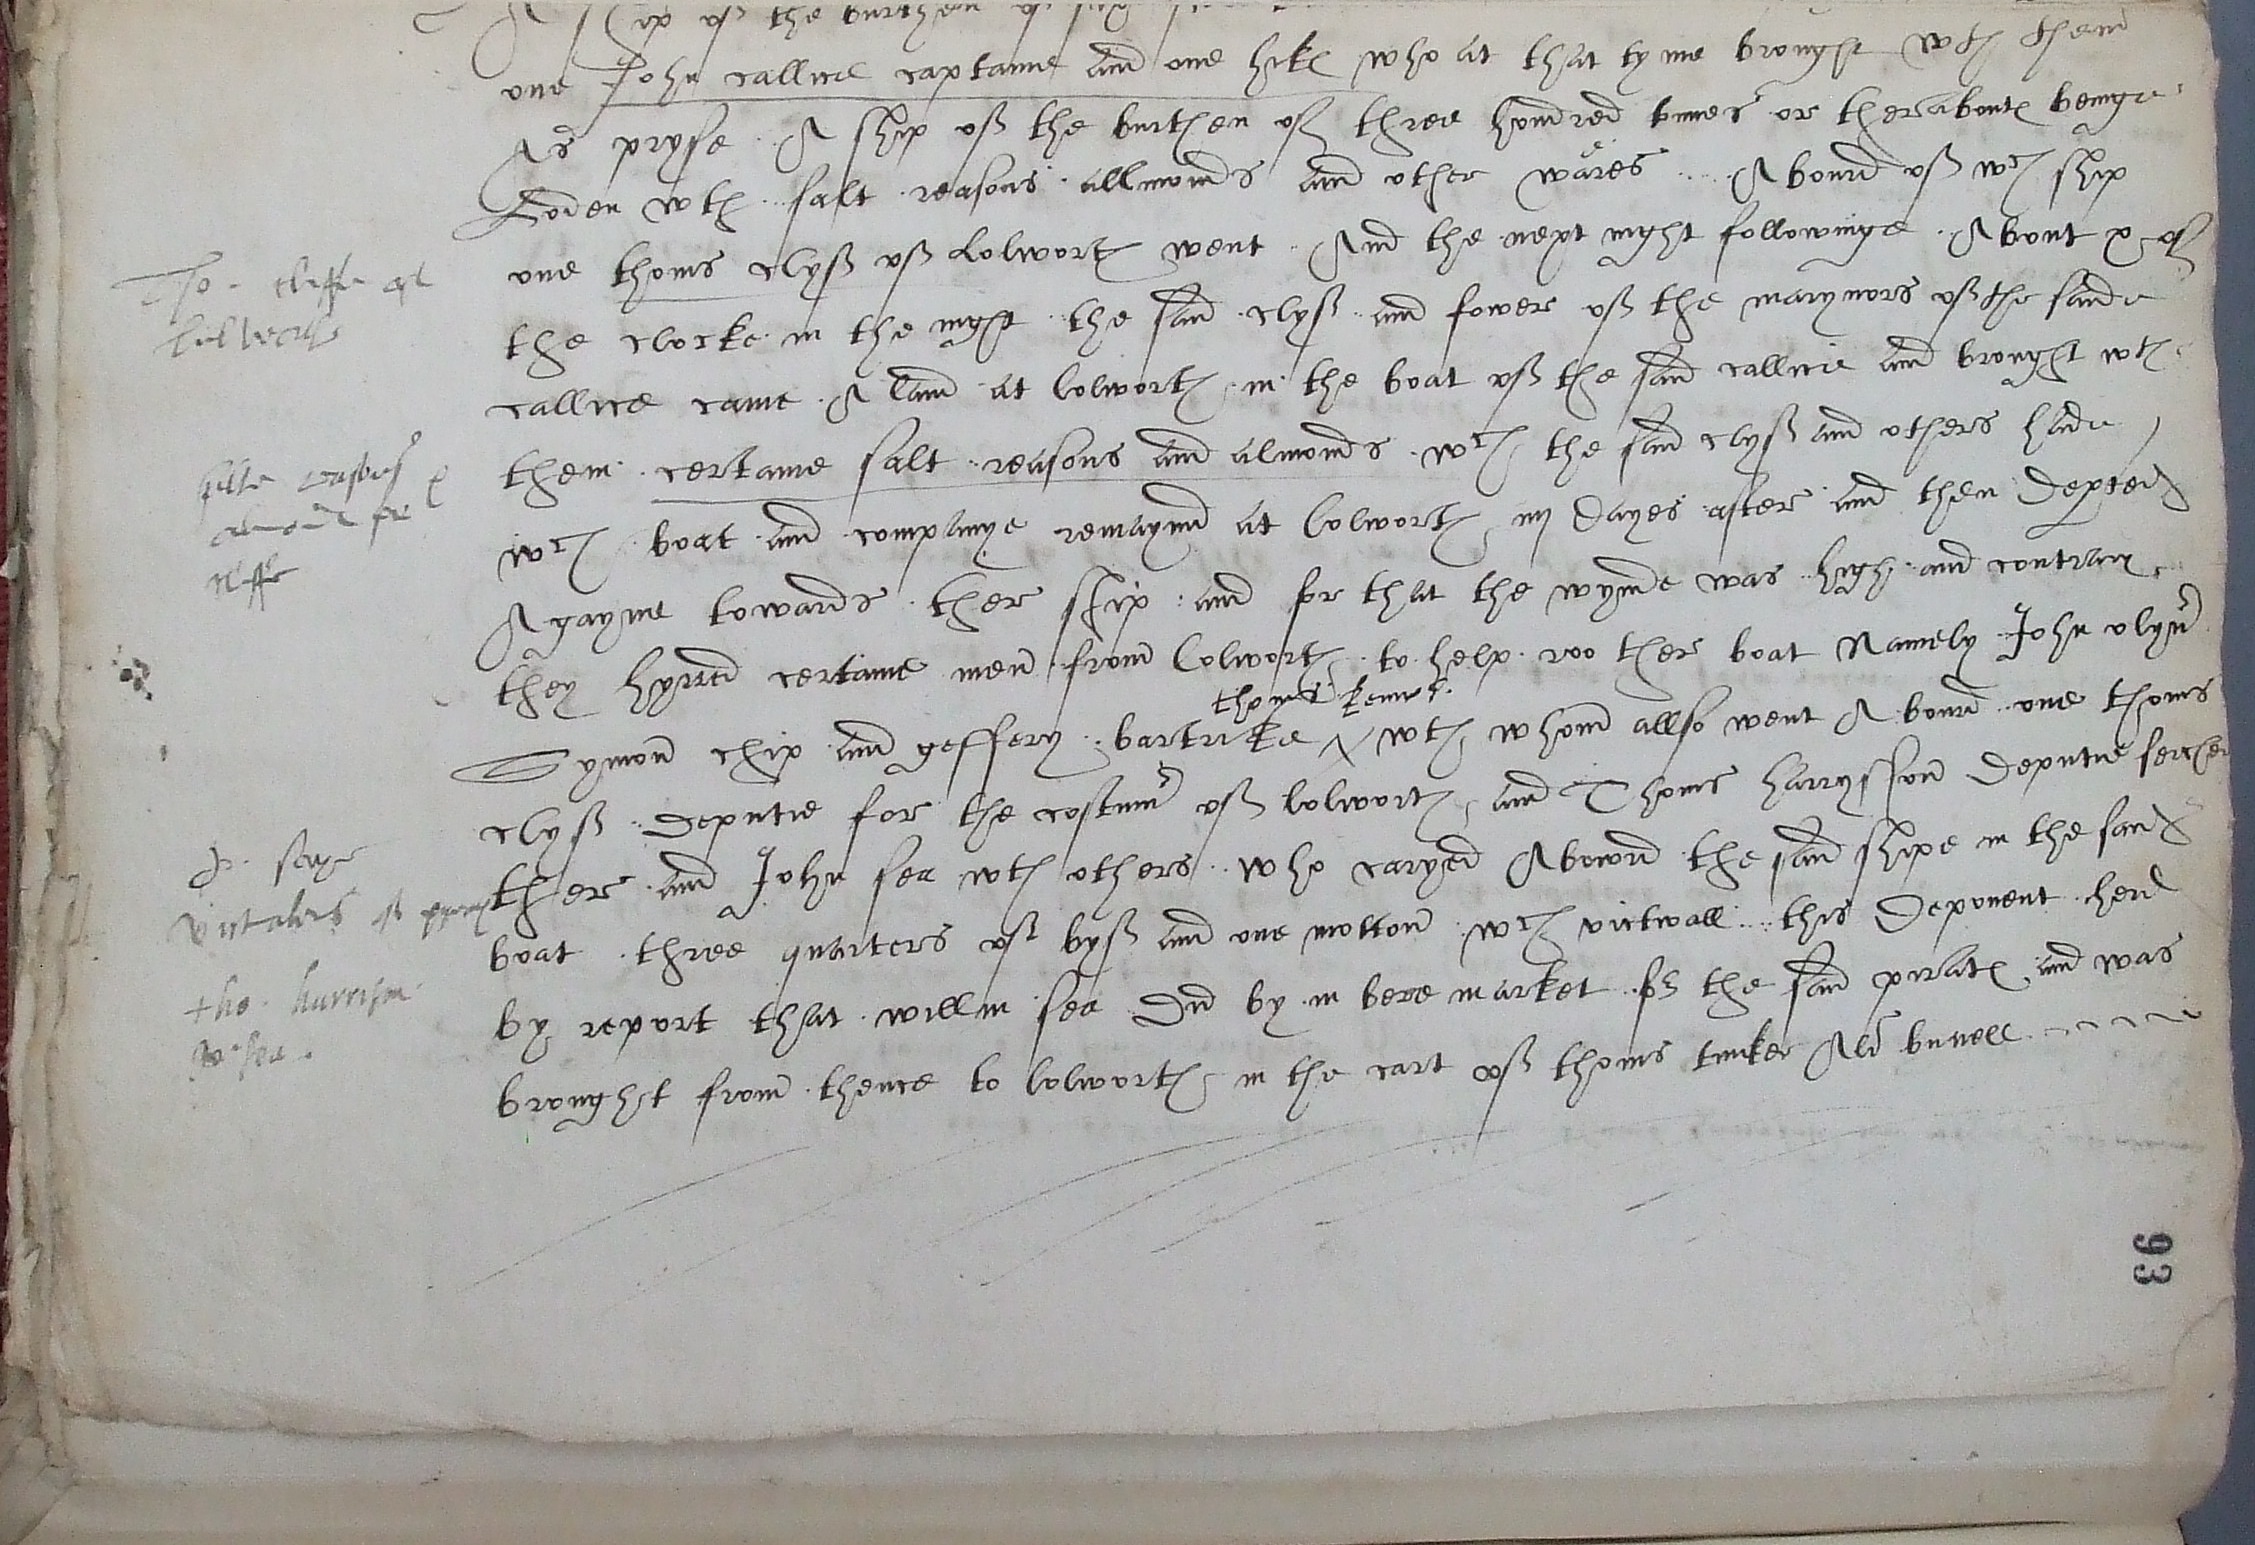 A ship off the burthen of
one John callice captaine and one hike who at that tyme brought wth them
As pryse A ship off the burthen off three hondred tunes or therabout beinge
Loden wth salt reasons allmonds and other wares Abourd off wch ship
one thoms clyff off Lolworth went And the next nyght followinge About x of
the clocke in the nyght the said clyff and fower off the marynors off the saide
callice came A land at lolworth in the boat off the said callice and brought wth
them certaine salt reasons and almonds wch the said clyff and others hade
wch boat and companye remaynd at lolworth iiij dayes after and then depted
Agayne towards ther ship and for that the wynde was high and contrary
they hyrred certaine men from lolworth to help roo ther boat Namely John olyver
thoms
Symon chip and geffery bartrike wth whom allso went A bourd one thoms
clyff deputie for the costumr off lolworth and Thoms harrysson deputie sercher
ther and John sea wth others who caryed Abourd the said shipe in the said
boat three quarters off byff and one motton wch victwall this deponent herd
by report that willm sea did by in bere market for the said pirats and was
brought from thence to lolworth in the cart off thoms tucker Als bunell
Tho cliffe of
Lulworth
salte reasons
almonds
cliffe
victualers of
tho. harrison
W. sea
93